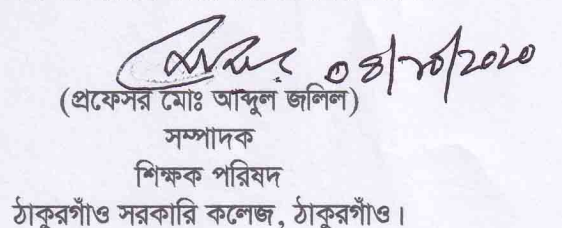 ০৪/১০/২০২০
(প্রফেসর মোঃ আব্দুল জলিল)
সম্পাদক
শিক্ষক পরিষদ
ঠাকুরগাঁও সরকারি কলেজ, ঠাকুরগাঁও।